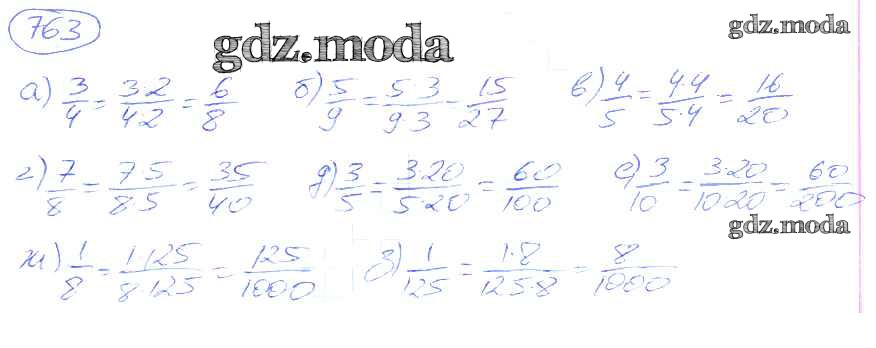 763
gdz.moda
gdz.moda
а) 3/4 = 3·2/4·2 = 6/8 б) 5/9 = 5·3/9·3 = 15/27 в) 4/5 = 4·4/5·4 = 16/20
г) 7/8 = 7·5/8·5 = 35/40 д) 3/5 = 3·20/5·20 = 60/100 е) 3/10 = 3·20/10·20 = 60/200
gdz.moda
ж) 1/8 = 1·125/8·125 = 125/1000 з) 1/125 = 1·8/125·8 = 8/1000